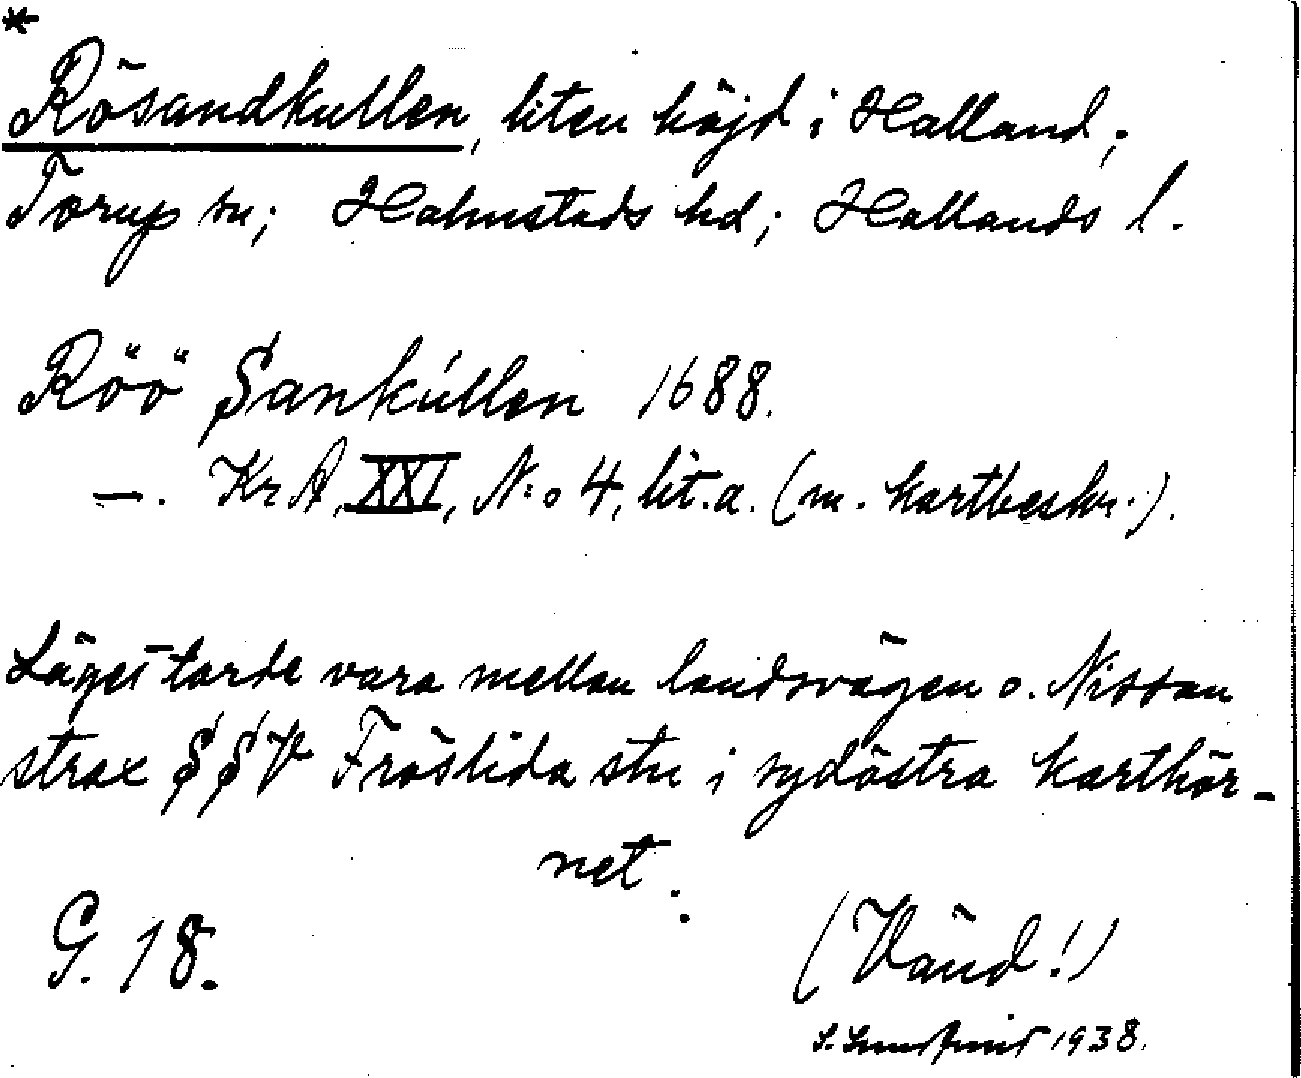 *
Rösandkullen, liten höjd i Halland;
Torup sn; Halmstads hd; Hallands l.
Röö Sankúllen 1688.
—. KrA, XXI, N:o 4, lit. a. (m. kartbeskr.).
Läget torde vara mellan landsvägen o. Nissan
strax SSV Fröslida stn i sydöstra karthör-
net.
G. 18.
(Vänd!)
1938.